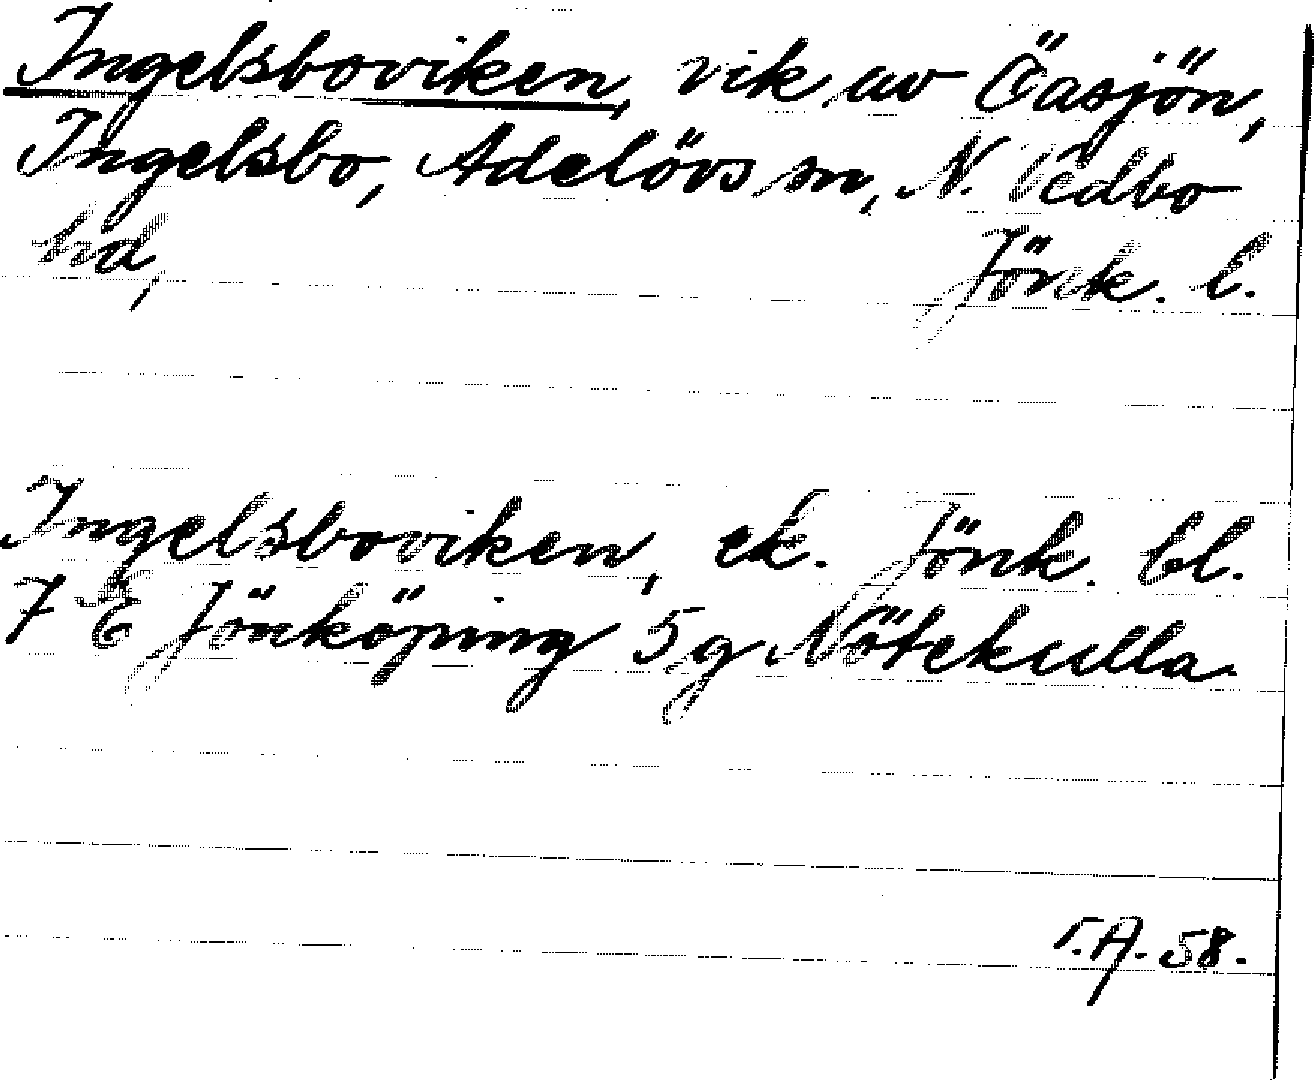 Ingelsboviken, vik av Öasjön,
Ingelsbo, Adelövs sn, N. Vedbo
hd, Jönk. l.
Ingelsboviken, ek. Jönk. bl.
7 E Jönköping 5 g Nötekulla.
r.A. 58.